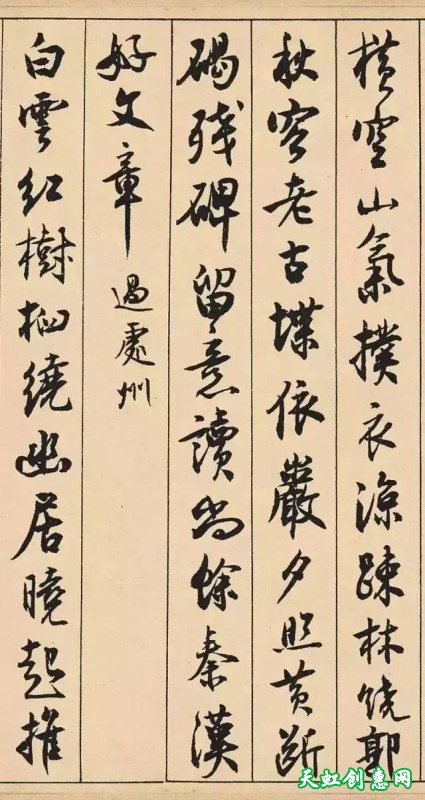 橫空山氣撲衣涼疎林繞郭
秋容老古堞依巖夕照黃斷
碣殘碑留意讀尚餘秦漢
好文章 過處州
白雲紅樹相繞幽居曉起推
天虹创惠网